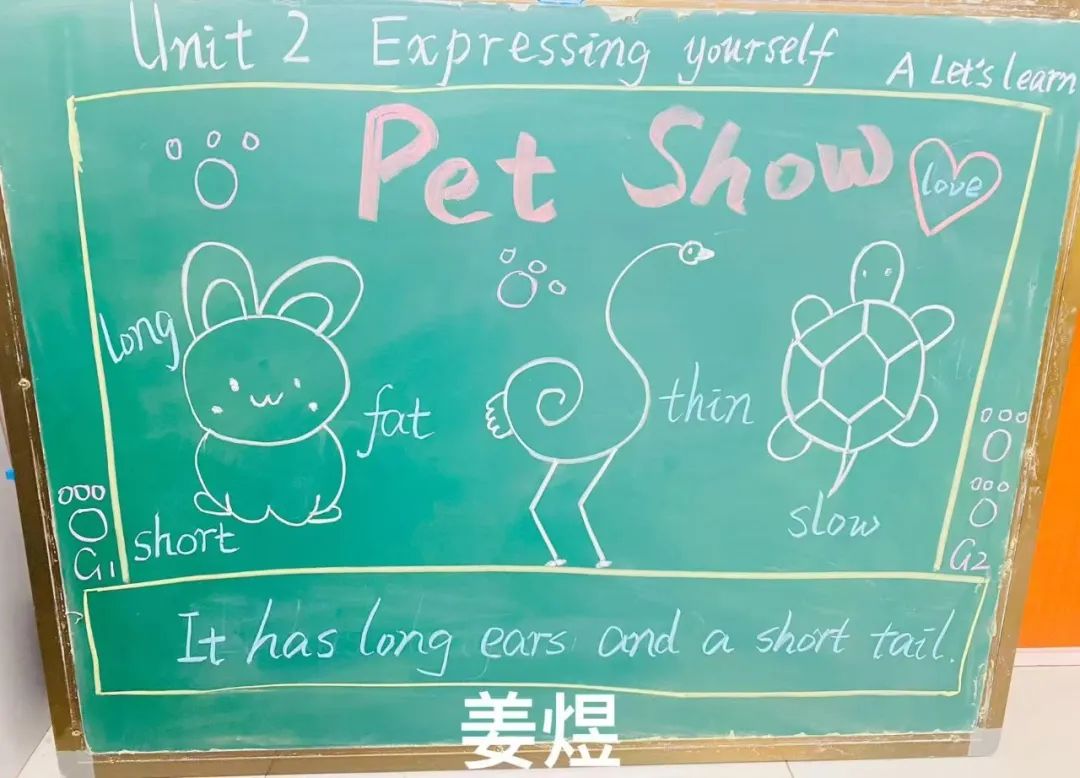 Unit 2 Expressing yourself
A Let's learn
Pet Show
love
long
fat
thin
short
slow
G1
G2
It has long ears and a short tail.
姜煜